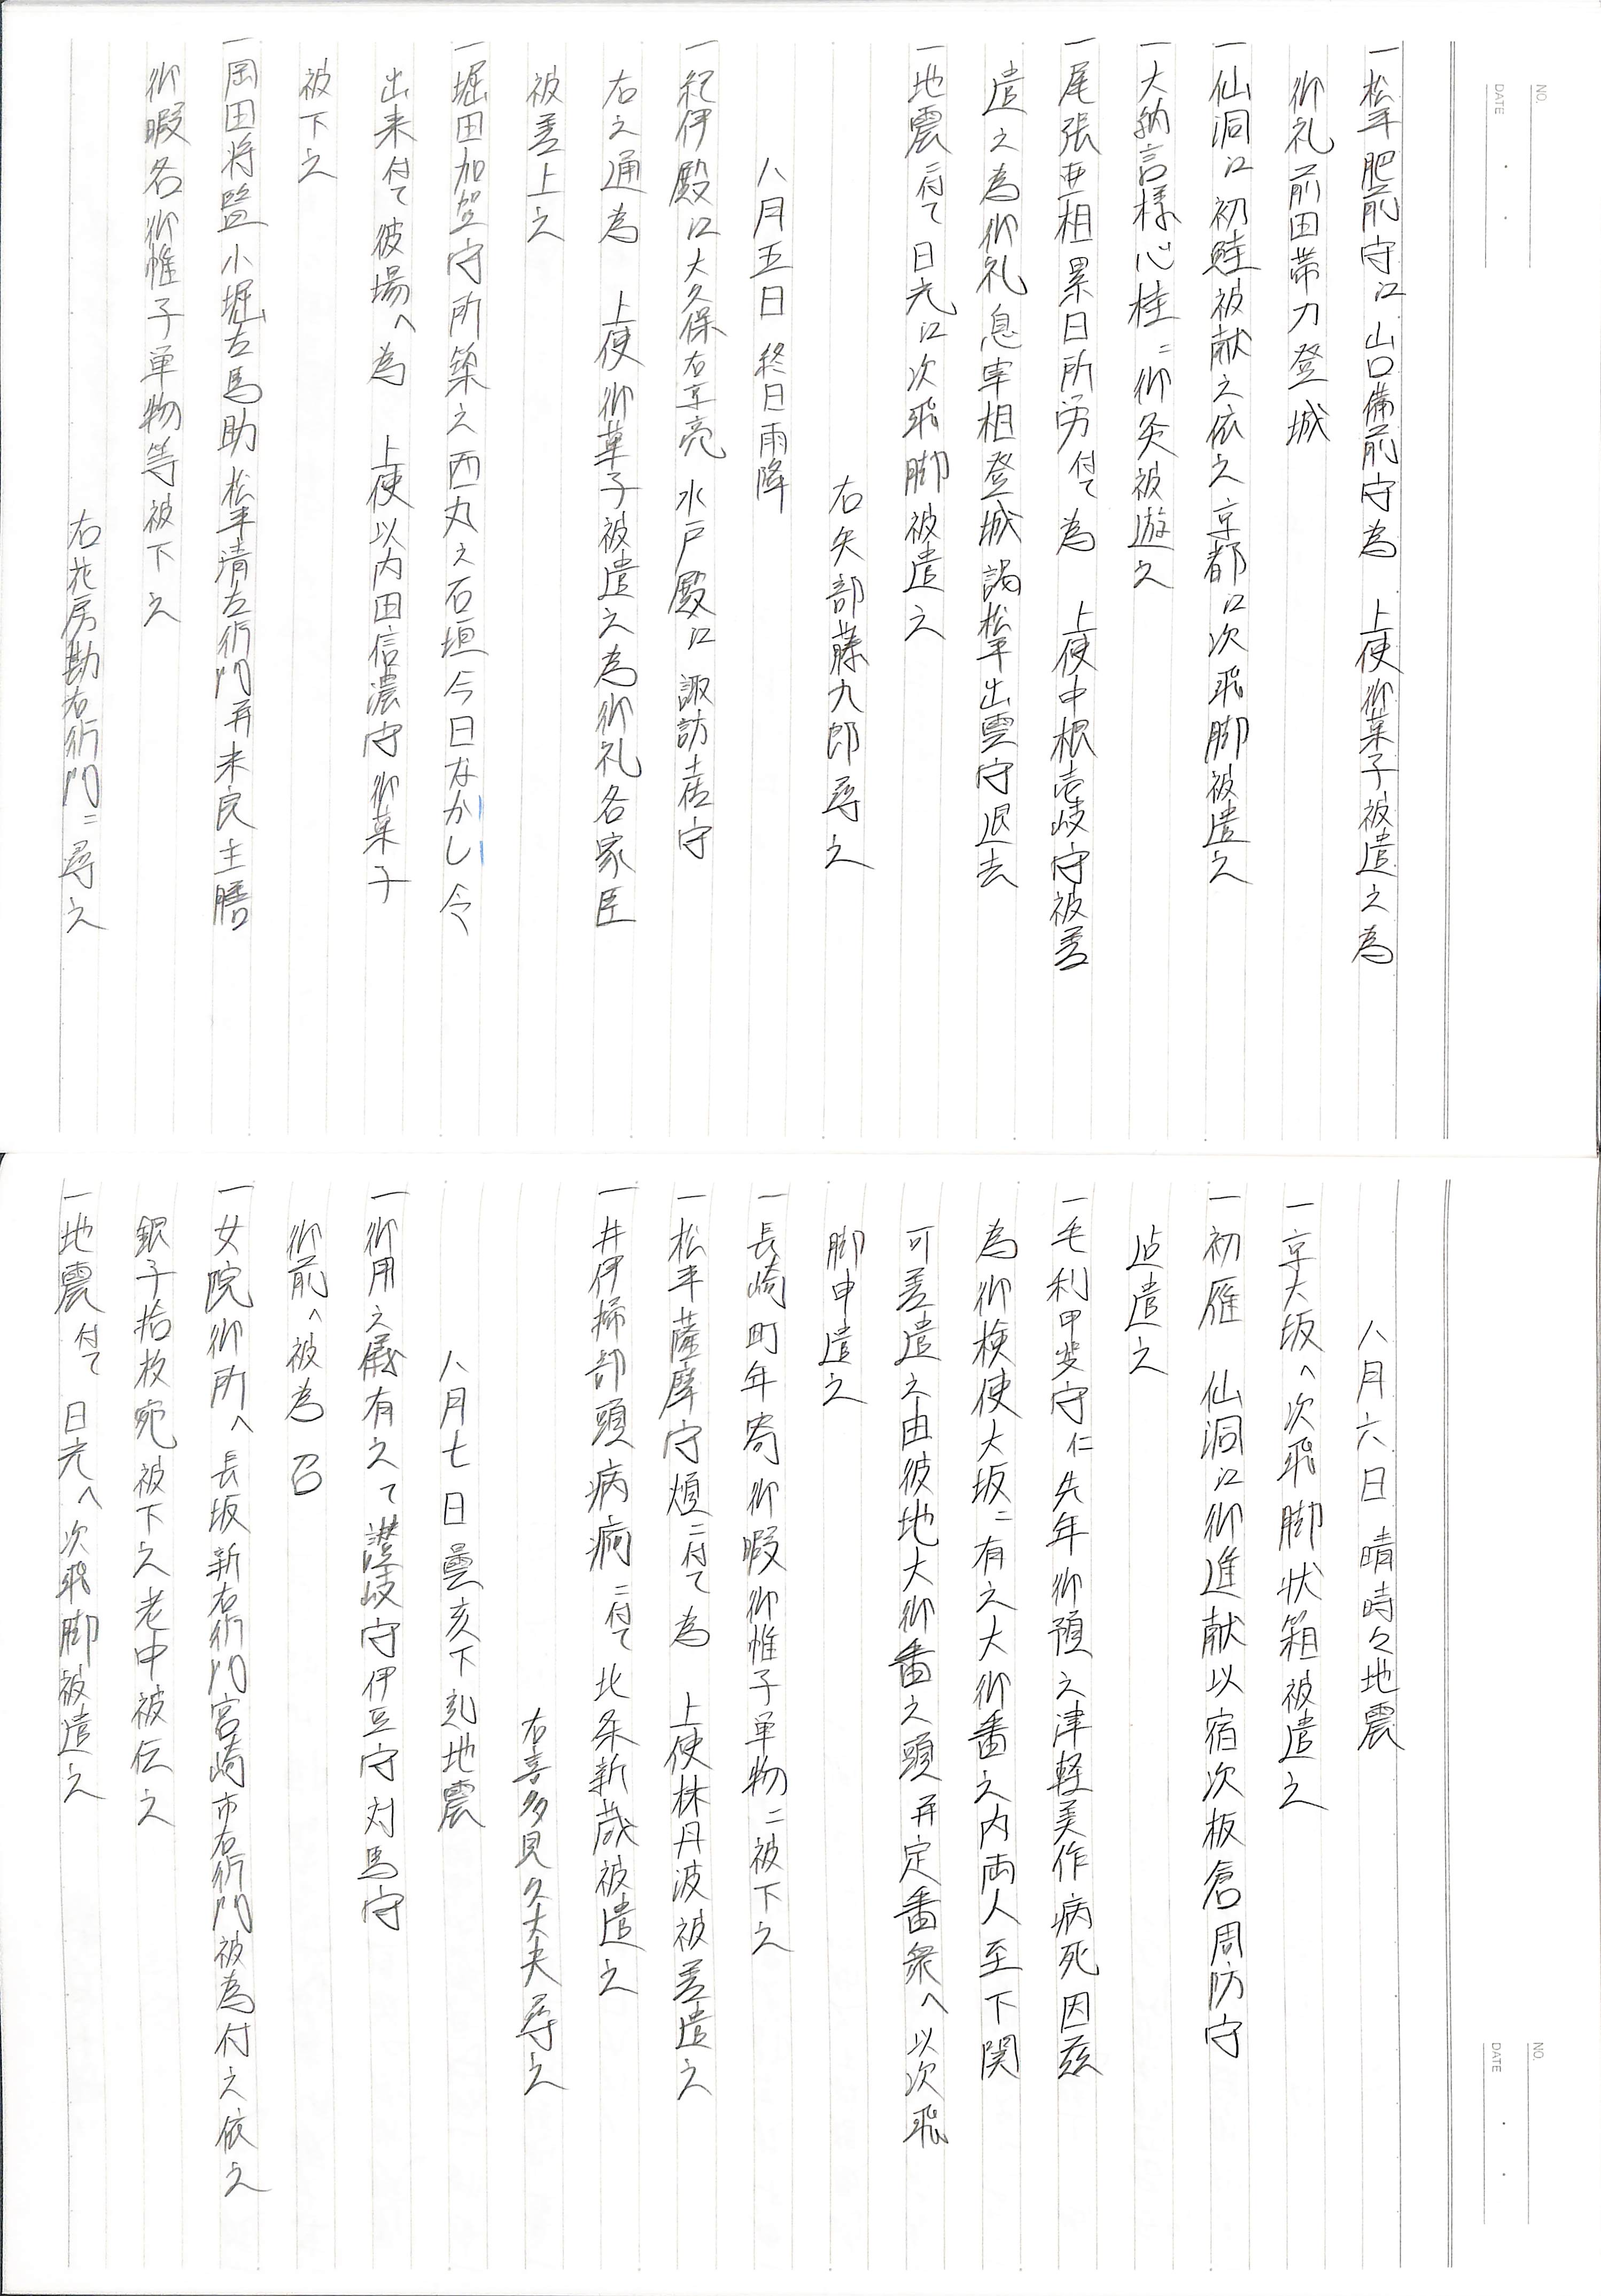 NO.
DATE
一松平肥前守江山口備前守為　上使御菓子被遣之為
御礼前田帯刀登城
一仙洞江初鮭被献之依之京都江次飛脚被遣之
一大納言様心桂ニ御灸被遊之
一尾張亜相累日所労付て為　上使中根壱岐守被差
遣之為御礼息宰相登城謁松平出雲守退去
一地震ニ付て日光江次飛脚被遣之
右矢部藤九郎尋之
八月五日 終日雨降
一紀伊殿江大久保右京亮 水戸殿江諏訪土佐守
右之通為　上使御菓子被遣之為御礼各家臣
被差上之
一堀田加賀守所築之西丸之石垣今日なかし令
出来付て彼場へ為　上使以内田信濃守御菓子
被下之
一岡田将監小堀左馬助松平清左衛門并末良主膳
御暇各御帷子単物等被下之
右花房勘右衛門ニ尋之
NO.
DATE
八月六日 晴時々地震
一京大坂へ次飛脚状箱被遣之
一初雁　仙洞江御進献以宿次板倉周防守
迠遣之
一毛利甲斐守仁先年御預之津軽美作病死因茲
為御検使大坂ニ有之大御番之内両人至下関
可差遣之由彼地大御番之頭并定番衆へ以次飛
脚申遣之
一長崎町年寄御暇御帷子単物二被下之
一松平薩摩守煩ニ付て為　上使林丹波被差遣之
一井伊掃部頭病痾ニ付て北条新蔵被遣之
右喜多見久大夫尋之
八月七日曇亥下刻地震
一御用之儀有之て讃岐守伊豆守対馬守
御前へ被為 召
一女院御所へ長坂新右衛門宮崎市右衛門被為付之依之
銀子拾枚宛被下之老中被伝之
一地震付て 日光へ次飛脚被遣之